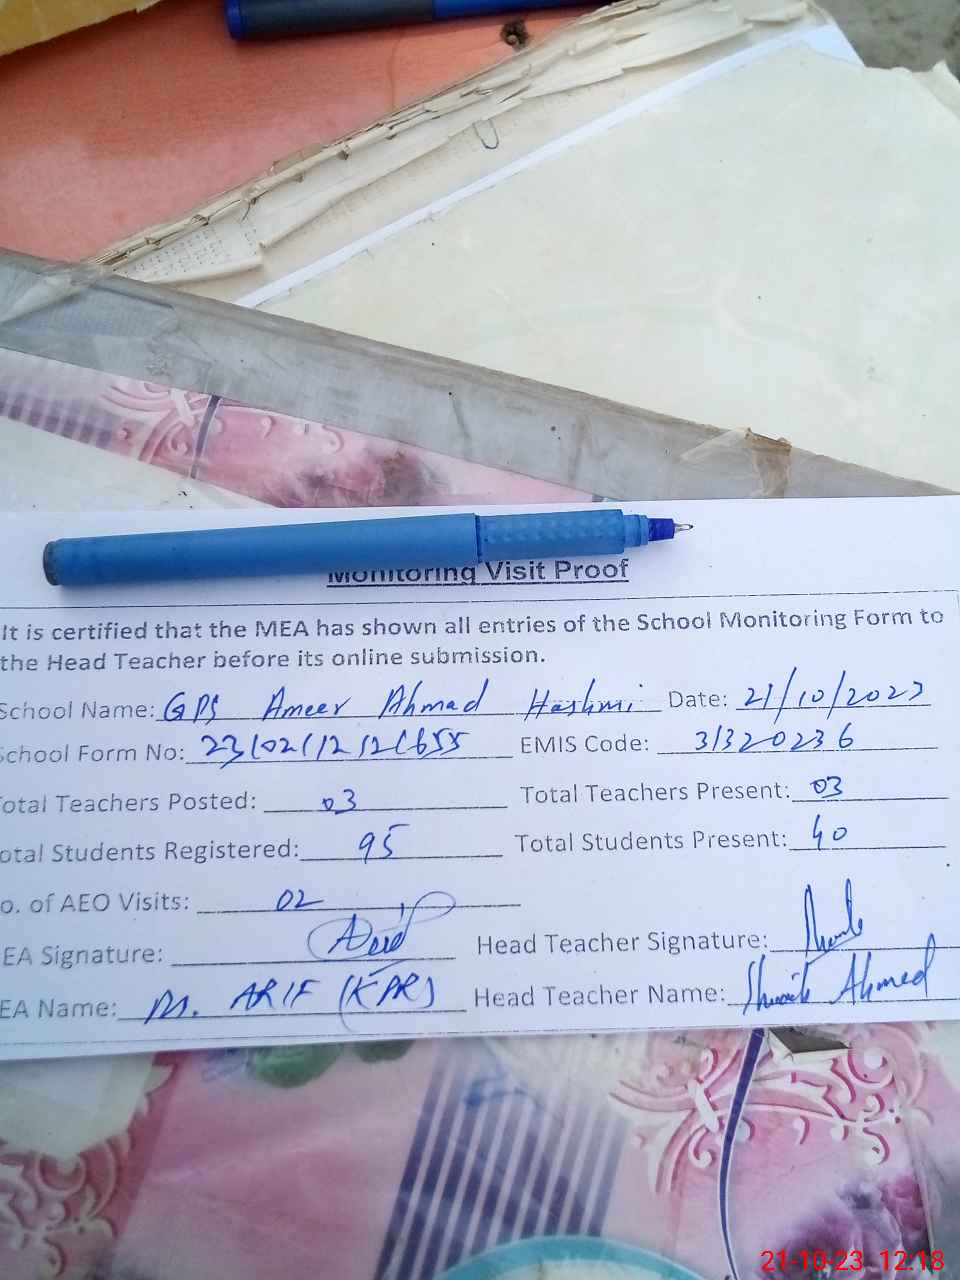 Monitoring Visit Proof
It is certified that the MEA has shown all entries of the School Monitoring Form to
the Head Teacher before its online submission.
School Name: GPS Ameer Ahmad Hashmi Date: 21/10/2023
School Form No: EMIS Code: 31320236
Total Teachers Posted: 03 Total Teachers Present: 03
otal Students Registered: 95 Total Students Present: 40
o. of AEO Visits: 02
EA Signature: Head Teacher Signature:
EA Name: M. ARIF (KPR) Head Teacher Name: Ahmed
21-10-23 12:18